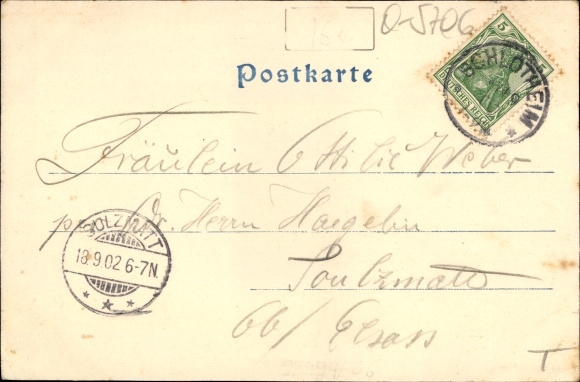 O-5706
Postkarte
5
DEUTSCHES REICH
SCHLOTHEIM
Fräulein Ottilie Weber
Dr. Herrn Haegelin
SULZMATT
18.9.02 6-7N.
Soulzmatt
Ob/ Elsass
T